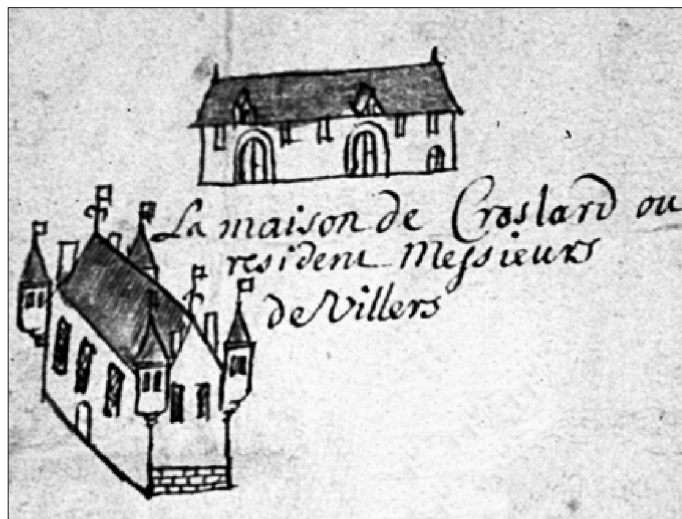 La maison de Croslard ou
resident Messieurs
de Villers